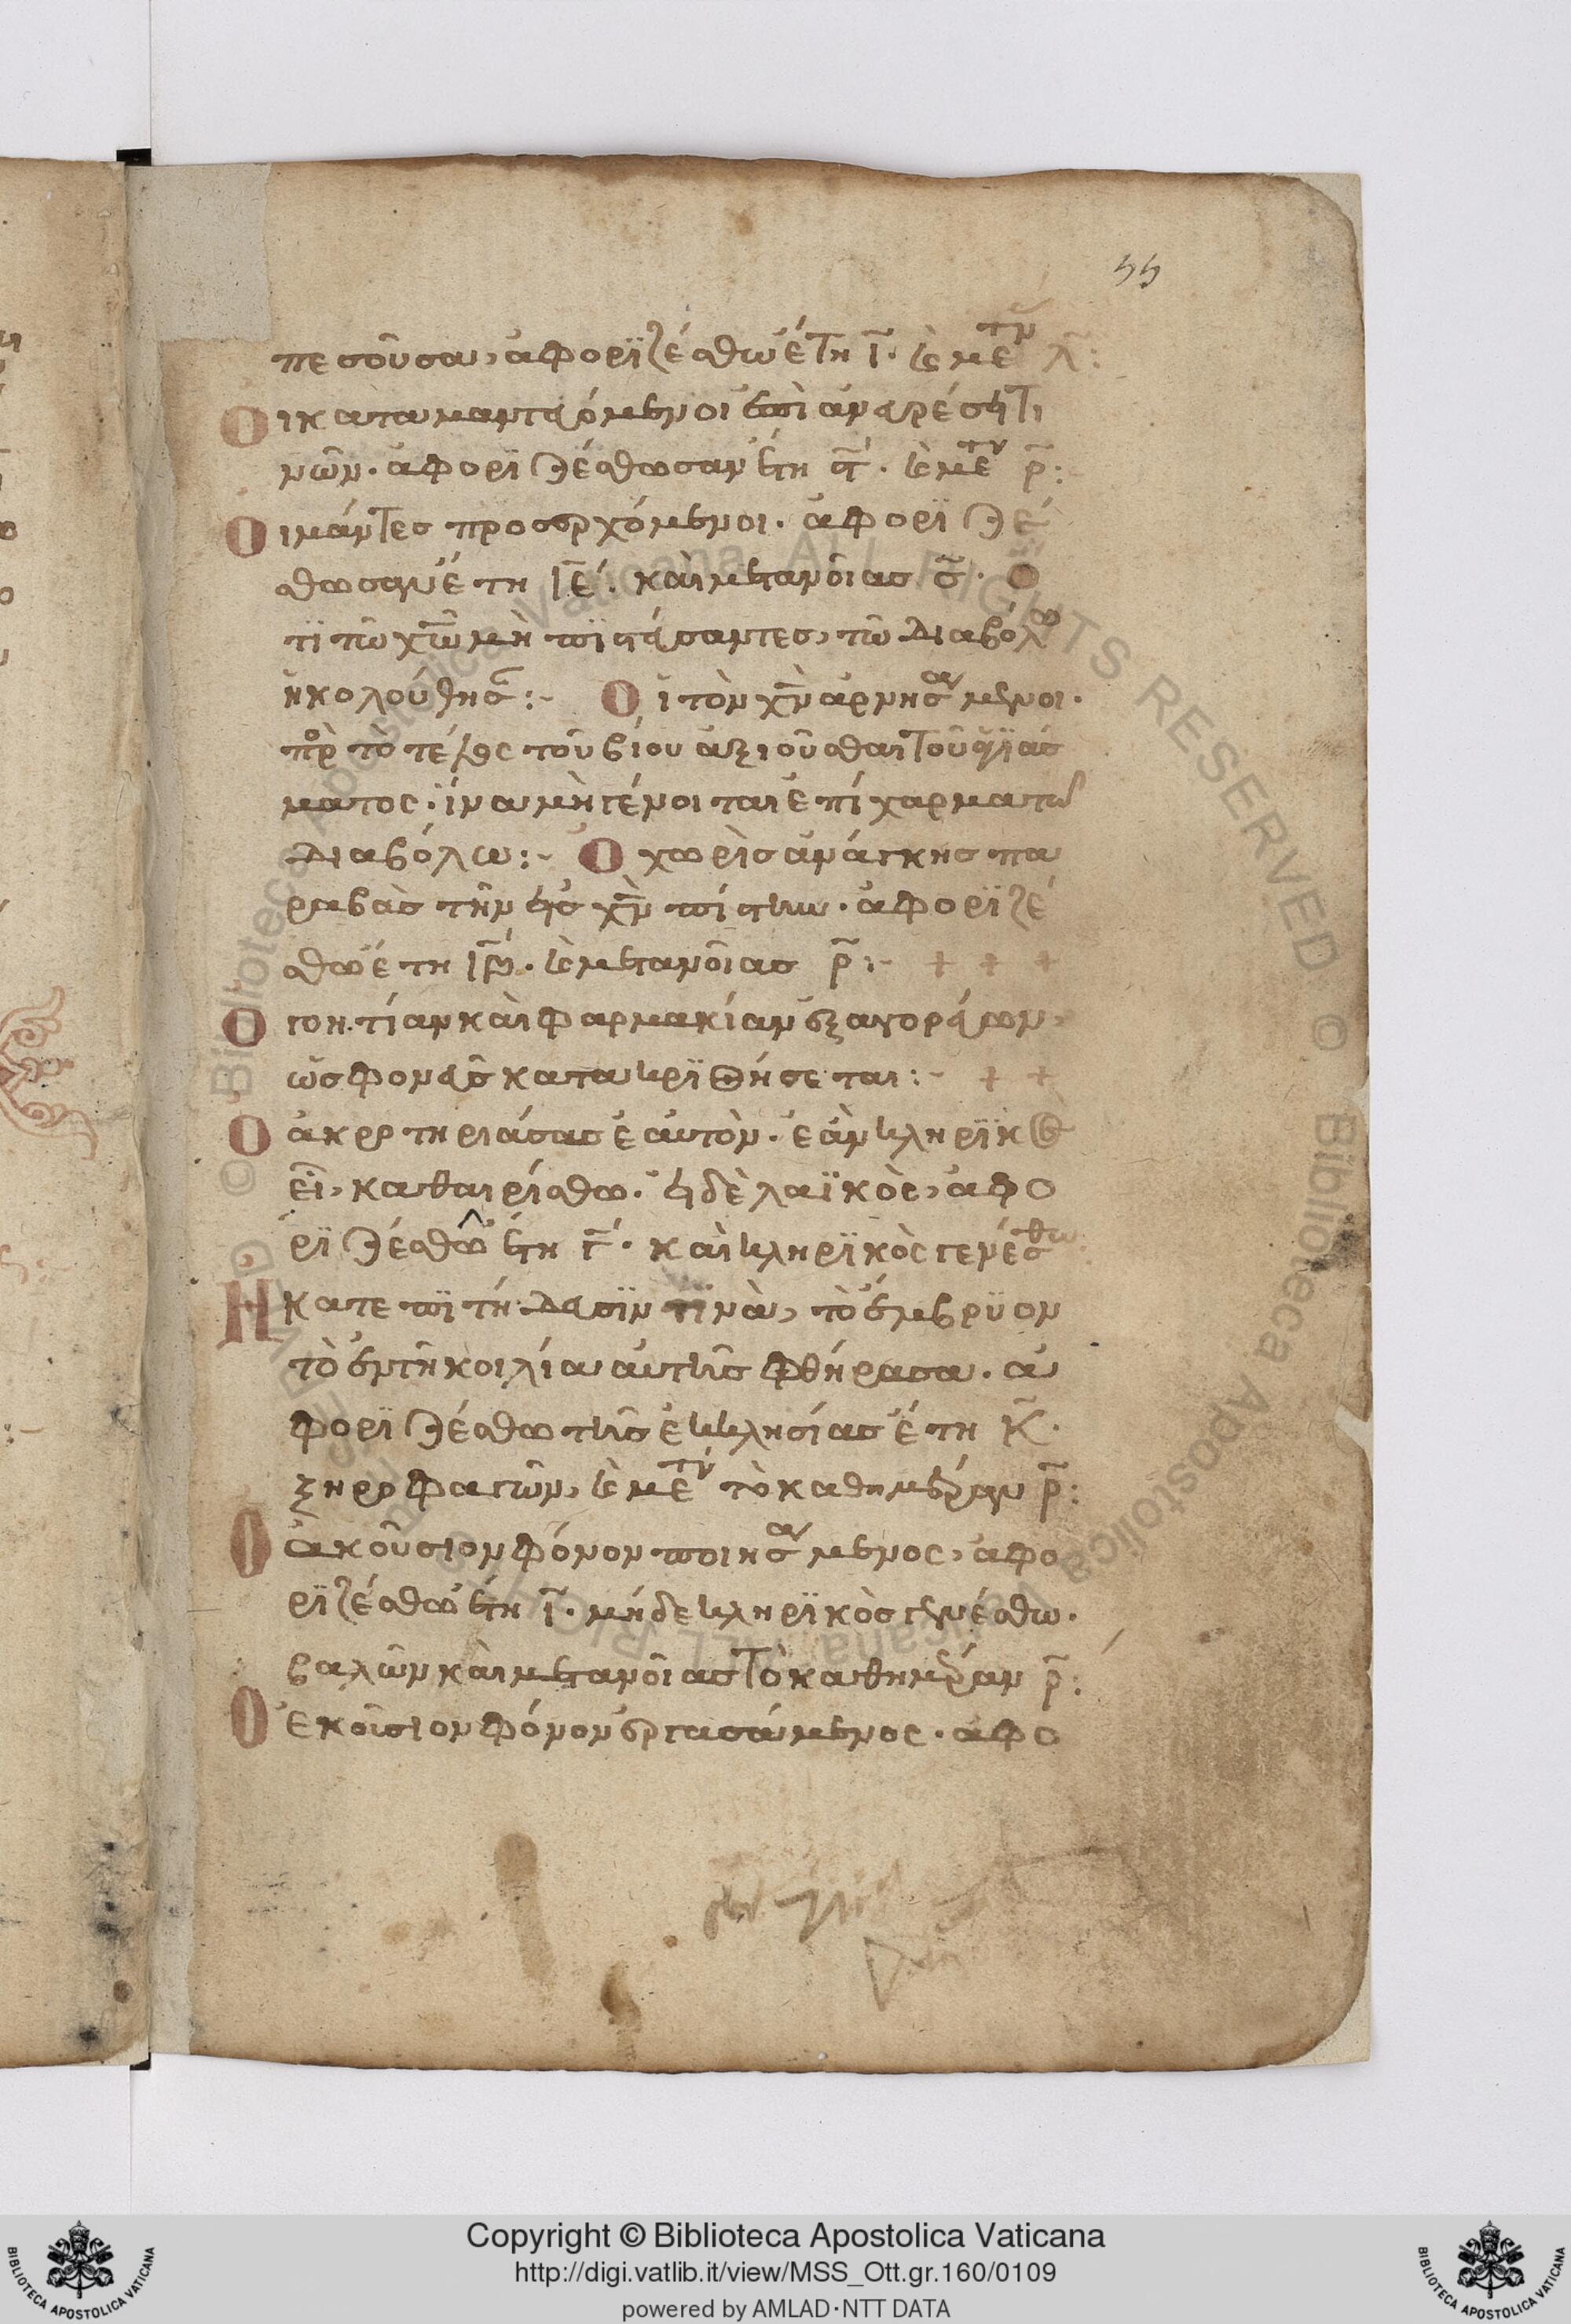 55
πεσοῦσα, ἀφοριζέσθω ἔτη ι̅· κ(αὶ) με τν λ̅:
Οἱ καταμαντευόμενοι ἐπὶ ἀνευρέσει τι
νῶν· ἀφοριζέσθωσαν ἔτη ϛ̅· κ(αὶ) με τν ρ̅:
Οἱ μάντες προσερχόμενοι· ἀφοριζέ
σθωσαν ἔτη ι̅ε̅· καὶ μετανοίας σ̅· ὅ
τϊ τῶ χ̅ω̅ μὴ πϊστεύσαντες, τῶ διαβόλω
ἠκολούθησ:- Οἱ τὸν χ̅ν̅ ἀρνησαμενοι·
πρ τὸ τέλος τοῦ βίου ἀξιοῦσθαι τοῦ ἁγϊάσ
ματος· ἵνα μὴ γένοιται ἐπίχαρμα τῶ
διαβόλω:- Ὁ χωρὶς ἀνάγκης πα
ραβὰς τὴν εἰς χ̅ν̅ πίστιν· ἀφοριζέ
σθω ἔτη ι̅β̅· κ(αὶ) μετανοίας ρ̅:- + + +
Ὁ γοητίαν καὶ φαρμακίαν ἐξαγορεύων,
ὡς φονεὺς κατακριθήσεται:- + +
Ὁ ἀκροτηριάσας ἑαυτὸν· ἐὰν κληρϊκὸς
εἶ, καθαιρίσθω· εἰ δὲ λαϊκὸς, ἀφο
ρϊζέσθω ἔτη γ̅· καὶ κληρϊκὸς γενέσθω
Ἡ κατεπϊτήδευσϊν τϊνὰ, τὸ ἔμβρϋον
τὸ ἐν τῆ κοιλία αὐτῆς φθήρασα· ἀ
φορϊζέσθω τῆς ἐκκλησίας ἔτη κ̅·
ξηροφαγῶν, κ(αὶ) με τν τὸ καθημέραν ρ̅:
Ὁ ἀκούσιον φόνον ποιησαμενος, ἀφο
ρϊζέσθω ἔτη ι̅· μήδε κληρϊκὸς γενέσθω·
βαλὼν καὶ μετανοίας τὸ καθημέραν ρ̅:
Ὁ ἑκούσιον φόνον ἐργασάμενος· ἀφο
Copyright © Biblioteca Apostolica Vaticana
http://digi.vatlib.it/view/MSS_Ott.gr.160/0109
powered by AMLAD·NTT DATA
BIBLIOTECA APOSTOLICA VATICANA
BIBLIOTECA APOSTOLICA VATICANA